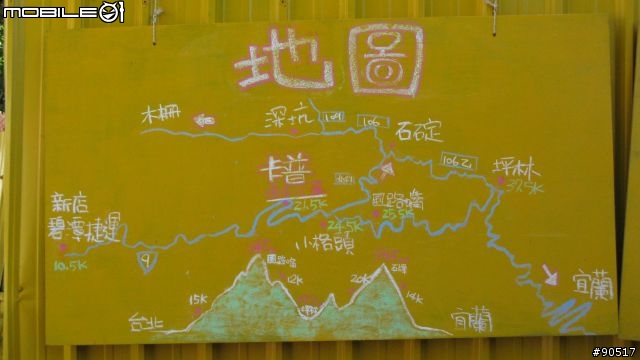 mobile01
地圖
木柵
深坑
109
106
石碇
106乙
坪林
37.5K
卡普
21.5K
25.5K
24.5K
新店
碧潭捷運
10.5K
9
小格頭
宜蘭
15K
12K
20K
14K
石碑
坪林
台北
宜蘭
#90517